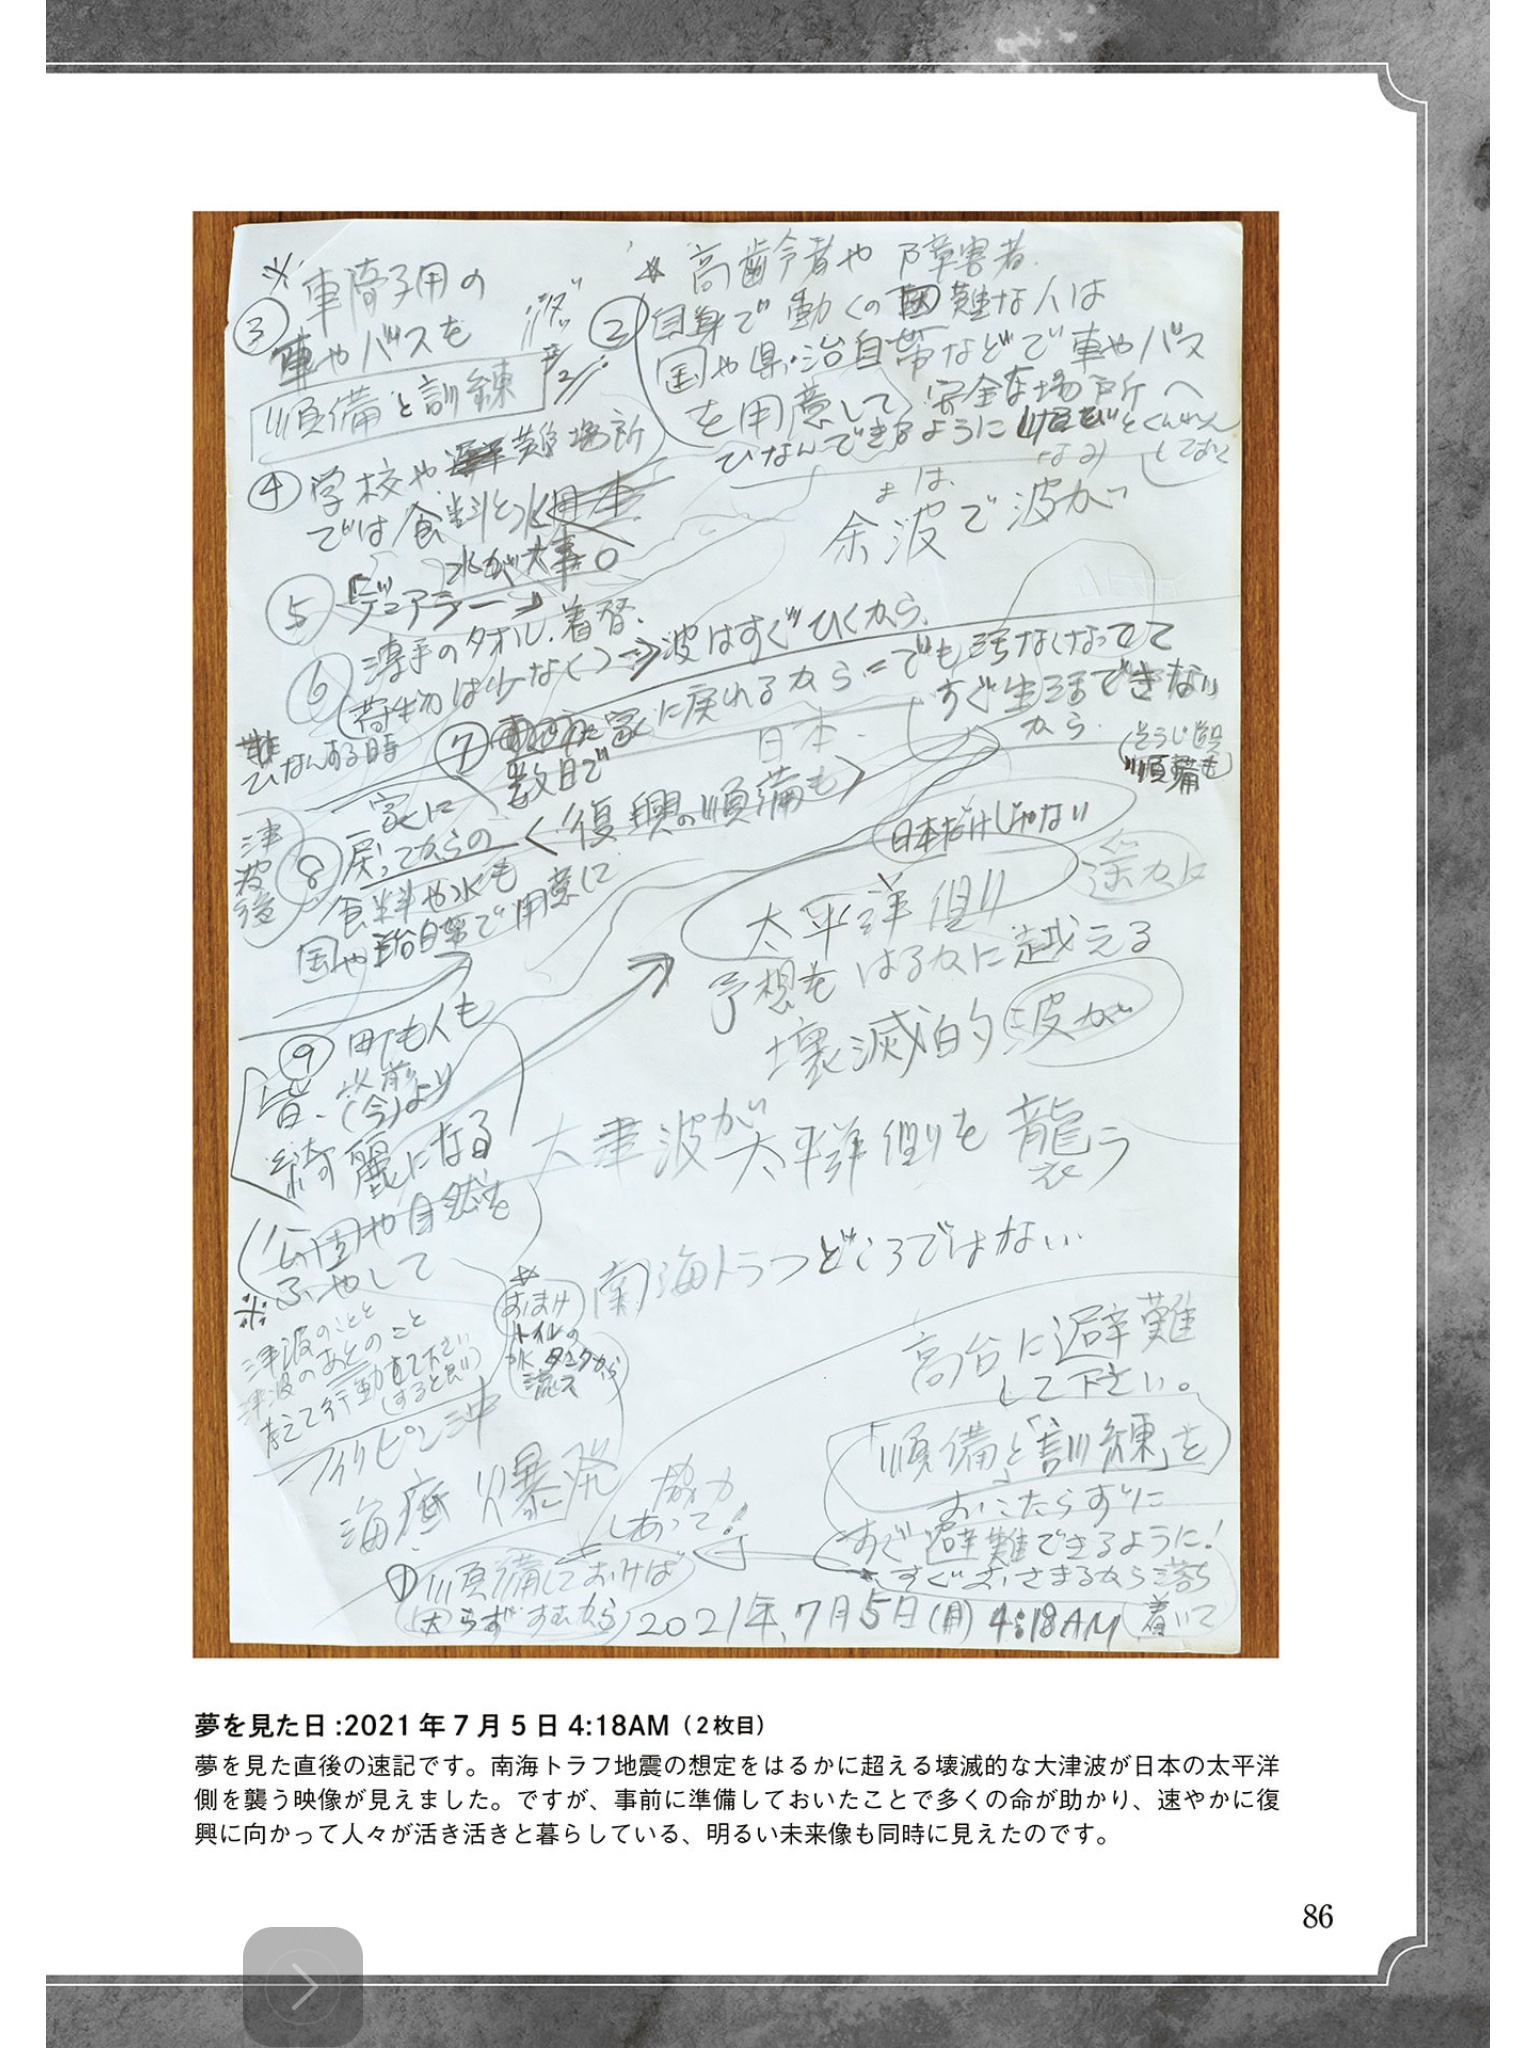 ※
③ 車椅子用の
車やバスを
順備と訓練
② 高齢者や障害者
自身で動くの困難な人は
国や県、治自帯などで車やバス
を用意して、安全な場所へ
ひなんできるように
しておく
④ 学校や難場所
では食料と水
水が大事。
余波で波が
⑤ 「デュアラー」
⑥ 薄手のタオル、着替、
(荷物は少なく)→波はすぐひくから、
ひなんする時
⑦ 家に戻れるから=でも汚なくなってて
数日で
すぐ生活できない
から.
(そうじ道具
順備も)
日本.
津波後
⑧ 家に
戻ってからの <復興の順備も>
食料や水も
国や治自帯で用意に
日本だけじゃない
太平洋側
遥かに
予想をはるかに越える
壊滅的波が
⑨ 町も人も
皆、以前
(今)より
綺麗になる
(公園や自然を
ふやして
大津波が太平洋側を襲う
南海トラフどころではない
※
津波のことと
津波のあとのこと
考えて行動して下さい
(すると良い)
おまけ
トイレの
水タンクから
流れ
高台に避難
して下さい。
「順備と「訓練」を
おこたらずに
すぐ避難できるように!
すぐおさまるから落ち
着いて
フィリピン沖
海底爆発
協力
しあって!
① 順備しておけば
困らずすむから
2021年、7月5日(月) 4:18AM
夢を見た日:2021年7月5日4:18AM(2枚目)
夢を見た直後の速記です。南海トラフ地震の想定をはるかに超える壊滅的な大津波が日本の太平洋
側を襲う映像が見えました。ですが、事前に準備しておいたことで多くの命が助かり、速やかに復
興に向かって人々が活き活きと暮らしている、明るい未来像も同時に見えたのです。
86